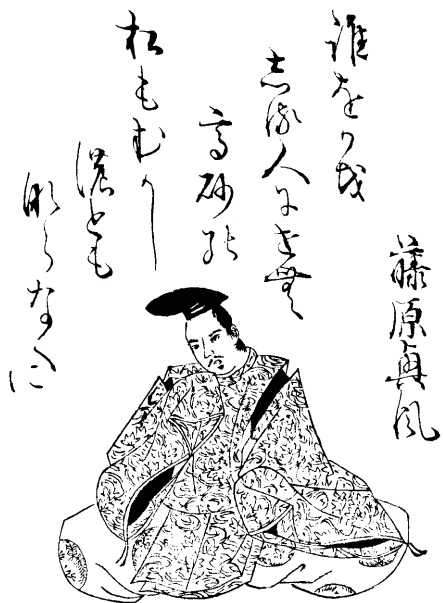 藤原興風
誰をかも
志る人にせむ
高砂の
松もむかし
濃とも
ならなくに